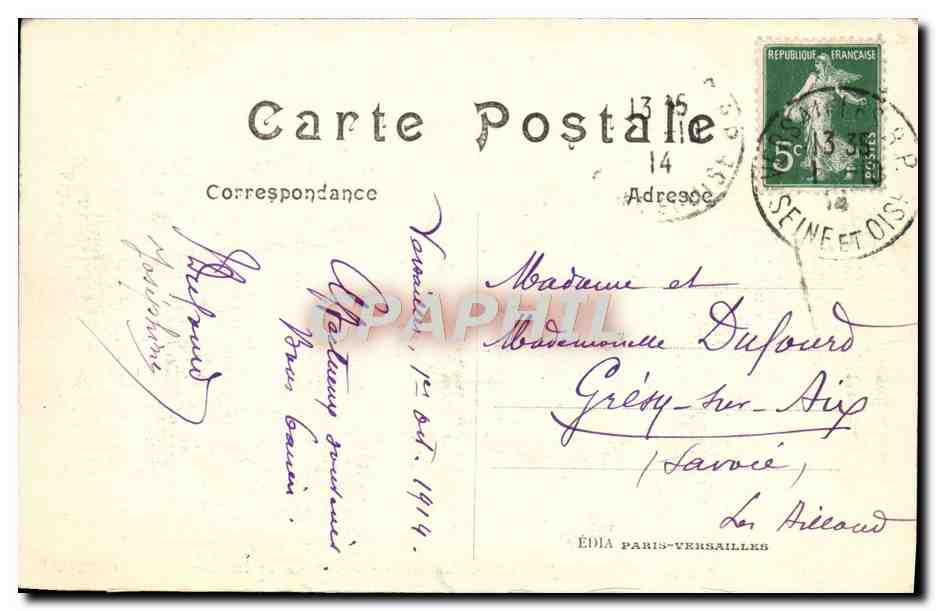 RÉPUBLIQUE FRANÇAISE
5c
POSTES
13 35
14
SEINE ET OISE
13 15
14
Carte Postale
Correspondance
Adresse
Versailles, 1er oct. 1914.
Affectueux souvenir
Bons baisers.
Dufourd
Joséphine
CPAPHIL
Madame et
Mademoiselle Dufourd
Grésy-sur-Aix
(Savoie)
Les
EDIA PARIS-VERSAILLES